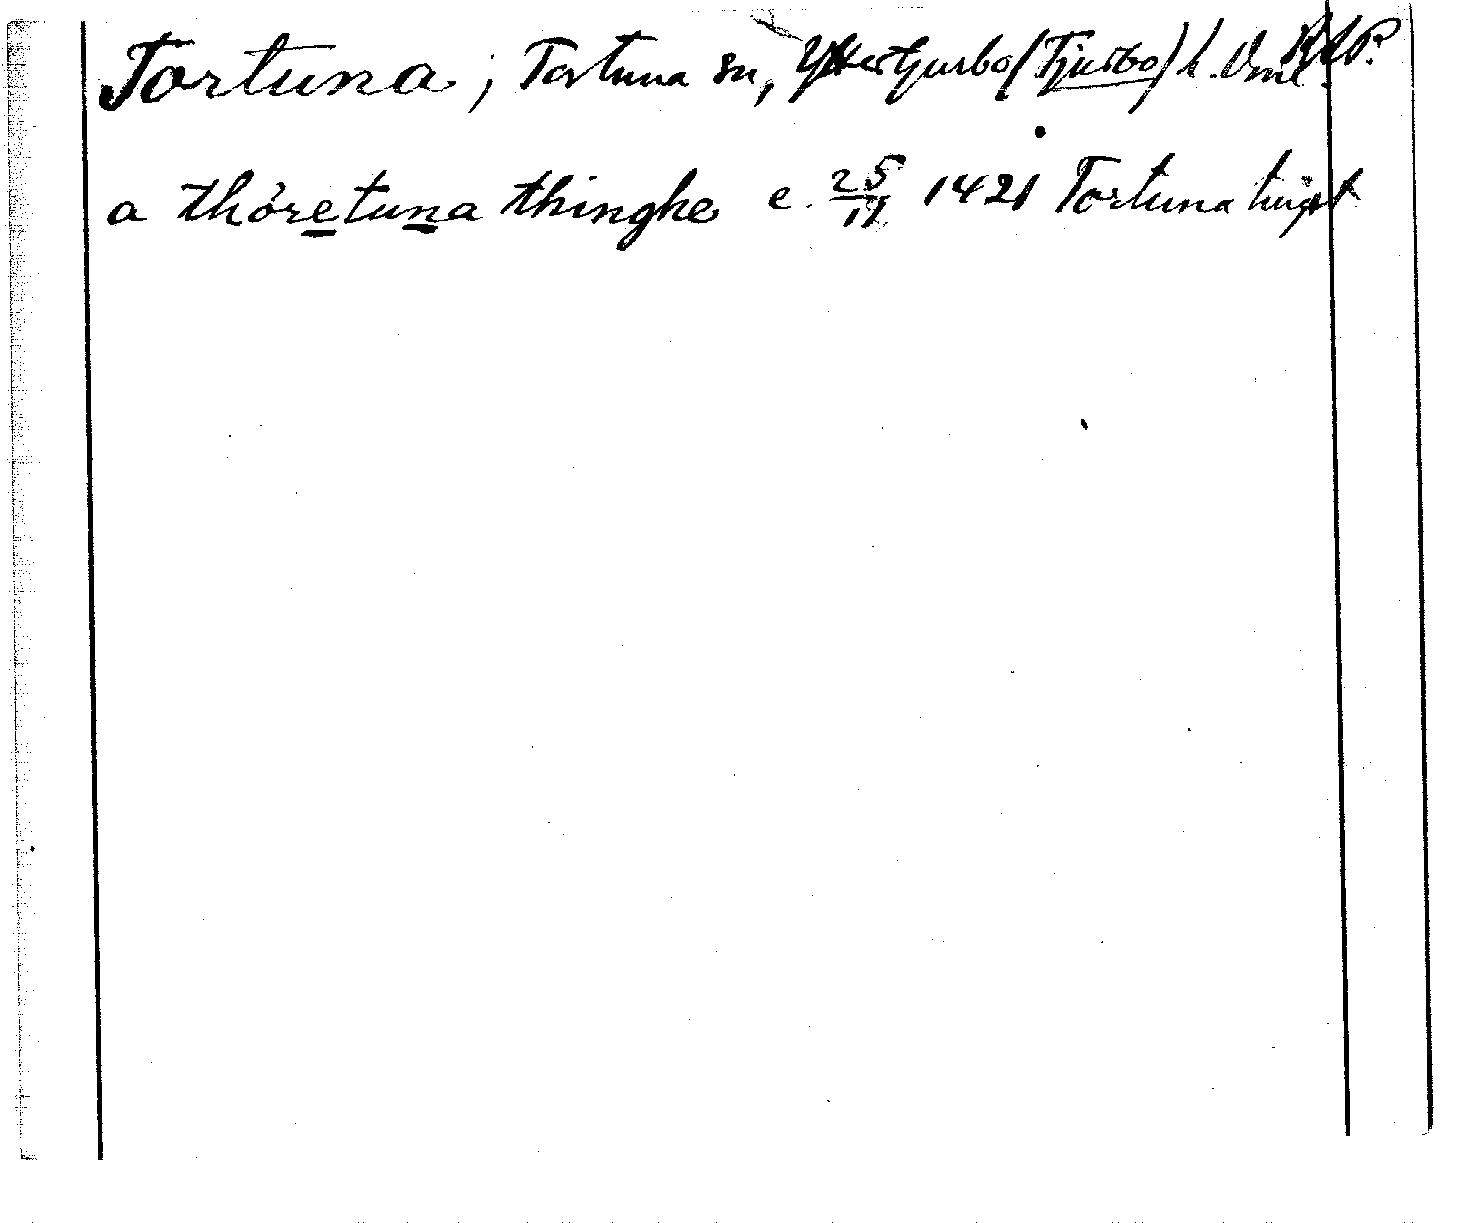 Tortuna; Tortuna sn, Yttertjurbo (Tjurbo) h. Vml. RAP.
a thöretuna thinghe e. 25/11 1421 Tortuna tingst